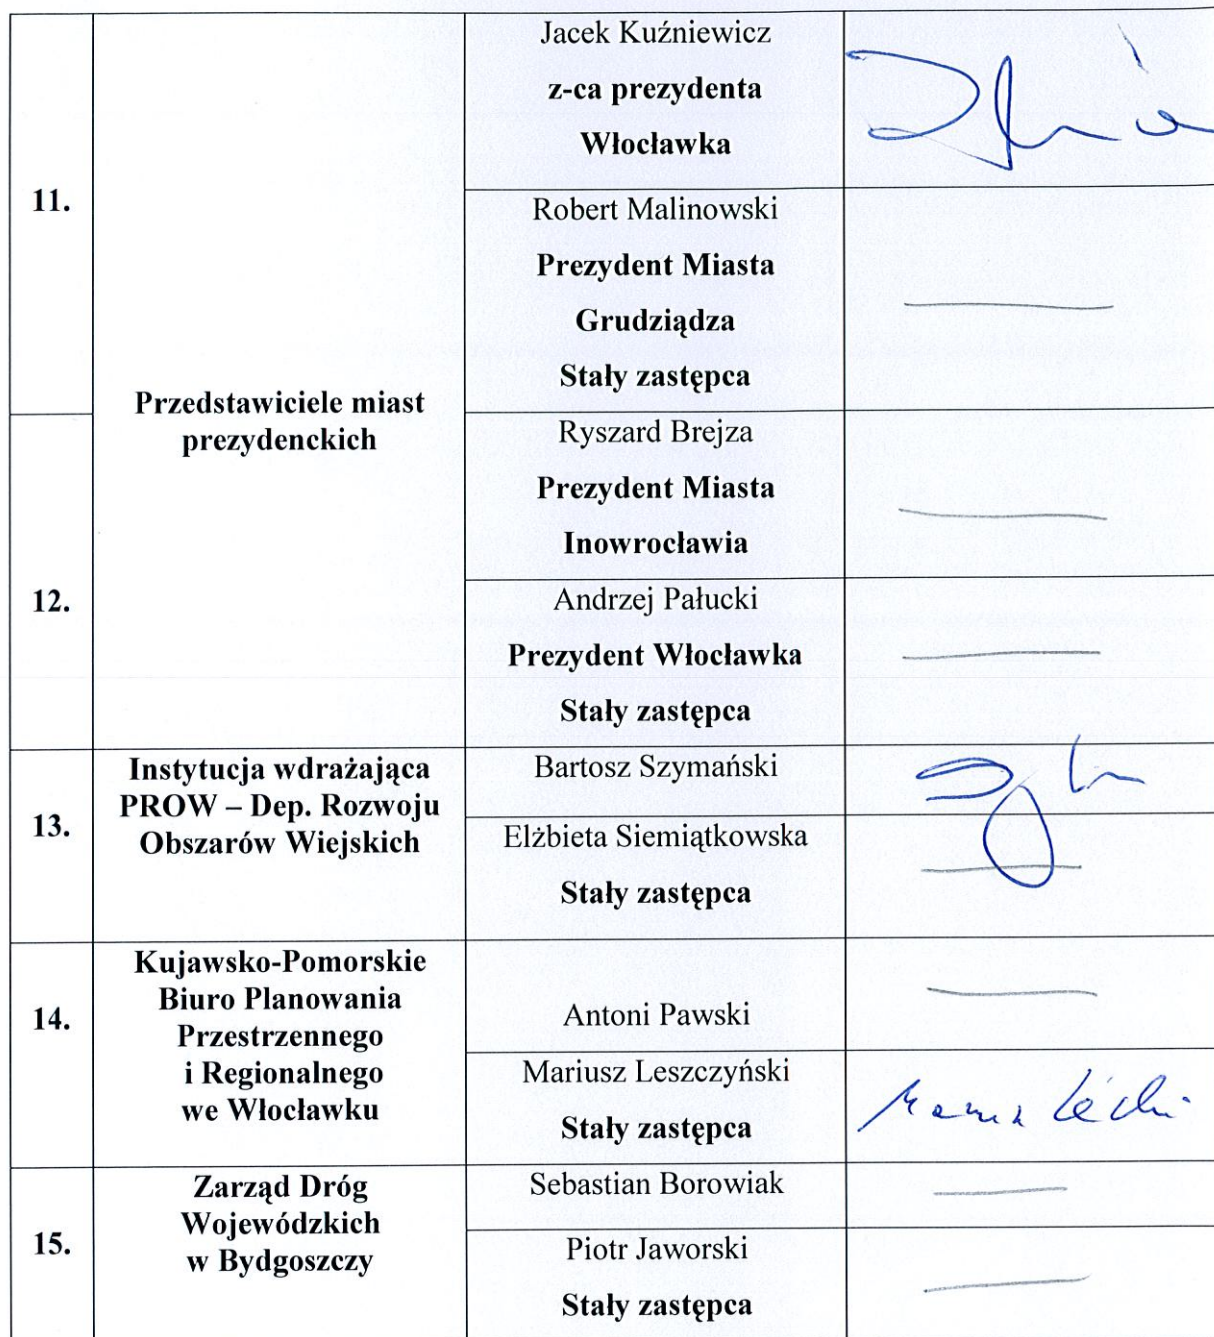 11.
Przedstawiciele miast
prezydenckich
Jacek Kuźniewicz
z-ca prezydenta
Włocławka
Robert Malinowski
Prezydent Miasta
Grudziądza
Stały zastępca
12.
Ryszard Brejza
Prezydent Miasta
Inowrocławia
Andrzej Pałucki
Prezydent Włocławka
Stały zastępca
13.
Instytucja wdrażająca
PROW – Dep. Rozwoju
Obszarów Wiejskich
Bartosz Szymański
Elżbieta Siemiątkowska
Stały zastępca
14.
Kujawsko-Pomorskie
Biuro Planowania
Przestrzennego
i Regionalnego
we Włocławku
Antoni Pawski
Mariusz Leszczyński
Stały zastępca
15.
Zarząd Dróg
Wojewódzkich
w Bydgoszczy
Sebastian Borowiak
Piotr Jaworski
Stały zastępca